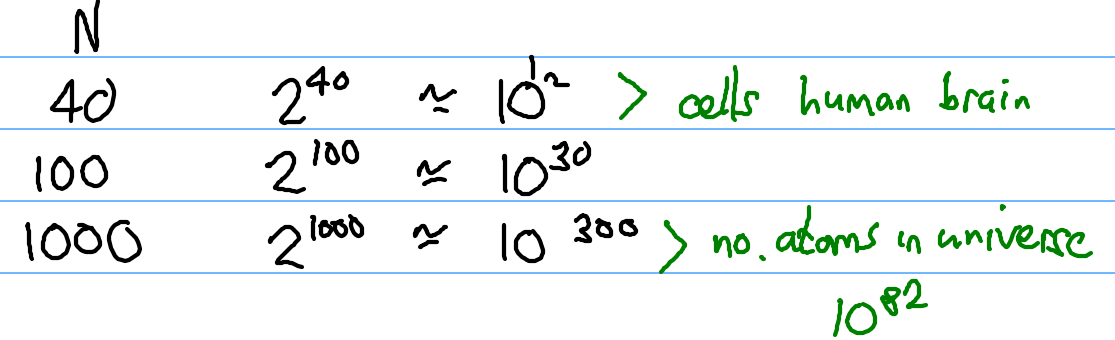 N
40 2^40 ≃ 10^12 > cells human brain
100 2^100 ≃ 10^30
1000 2^1000 ≃ 10^300 > no. atoms in universe
10^82